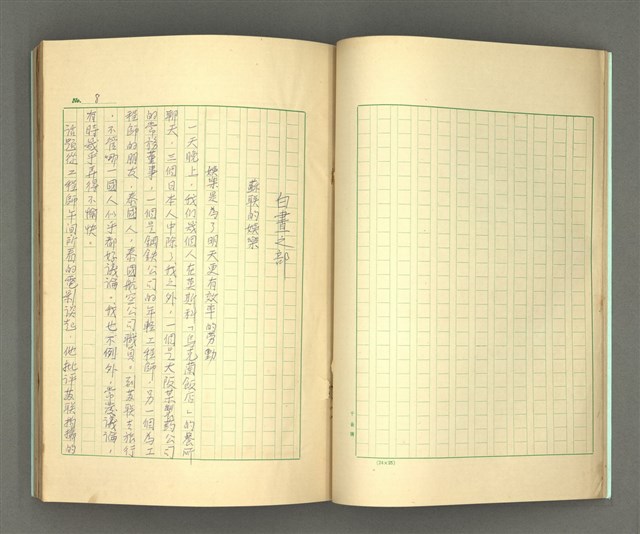 No. 8
白晝之部
蘇联的娛樂
娛樂是為了明天更有效率的勞動
一天晚上，我们幾個人在莫斯科「烏克蘭飯店」的
聊天。三個日本人中除了我之外，一個是大阪某製药公司
的常務董事，一個是鋼鉄公司的年輕工程師，另一個為工
程師的朋友，泰國人，泰國航空公司職員，到苏联去旅行
。不管哪一國人似乎都好議論，我也不例外，常愛議論，
有時幾乎弄得不愉快。
話題從工程師午间所看的電影談起。他批评苏联拍攝的
(24×25)